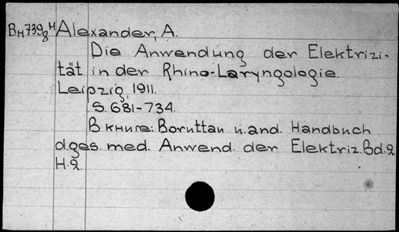 Вн739/8 н Alexander, A.
Die Anwendung der Elektrizi-
tät in der Rhino-Laryngologie.
Leipzig, 1911.
S. 681-734.
В книге: Boruttau u. and. Handbuch
d. ges. med. Anwend. der Elektriz. Bd. 2
H. 2.